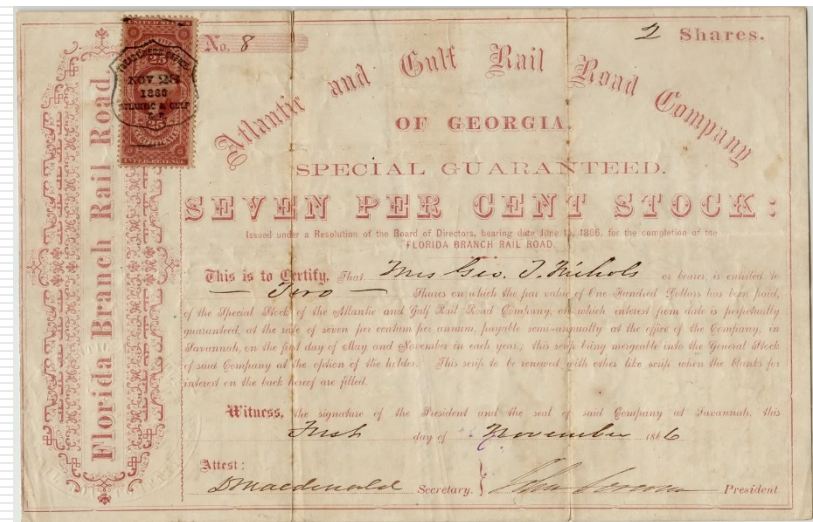 No. 8
2 Shares.
Atlantic and Gulf Rail Road Company
OF GEORGIA.
SPECIAL GUARANTEED.
SEVEN PER CENT STOCK:
Issued under a Resolution of the Board of Directors, bearing date June 1866, for the completion of the
FLORIDA BRANCH RAIL ROAD.
This is to Certify, That Mrs Geo. T. Nichols or bearer, is entitled to
Two Shares on which the par value of One Hundred Dollars has been paid,
of the Special Stock of the Atlantic and Gulf Rail Road Company, on which interest from date is perpetually
guaranteed, at the rate of seven per centum per annum, payable semi-annually at the office of the Company, in
Savannah, on the first day of May and November in each year; this scrip being mergeable into the General Stock
of said Company at the option of the holder. This scrip to be renewed with other like scrip when the blanks for
interest on the back hereof are filled.
Witness, the signature of the President and the seal of said Company at Savannah, this
First day of November 1866
Attest:
D Macdonald Secretary. President
Florida Branch Rail Road.
25
NOV 28
1866
ATLANTIC & GULF
R. R.
25